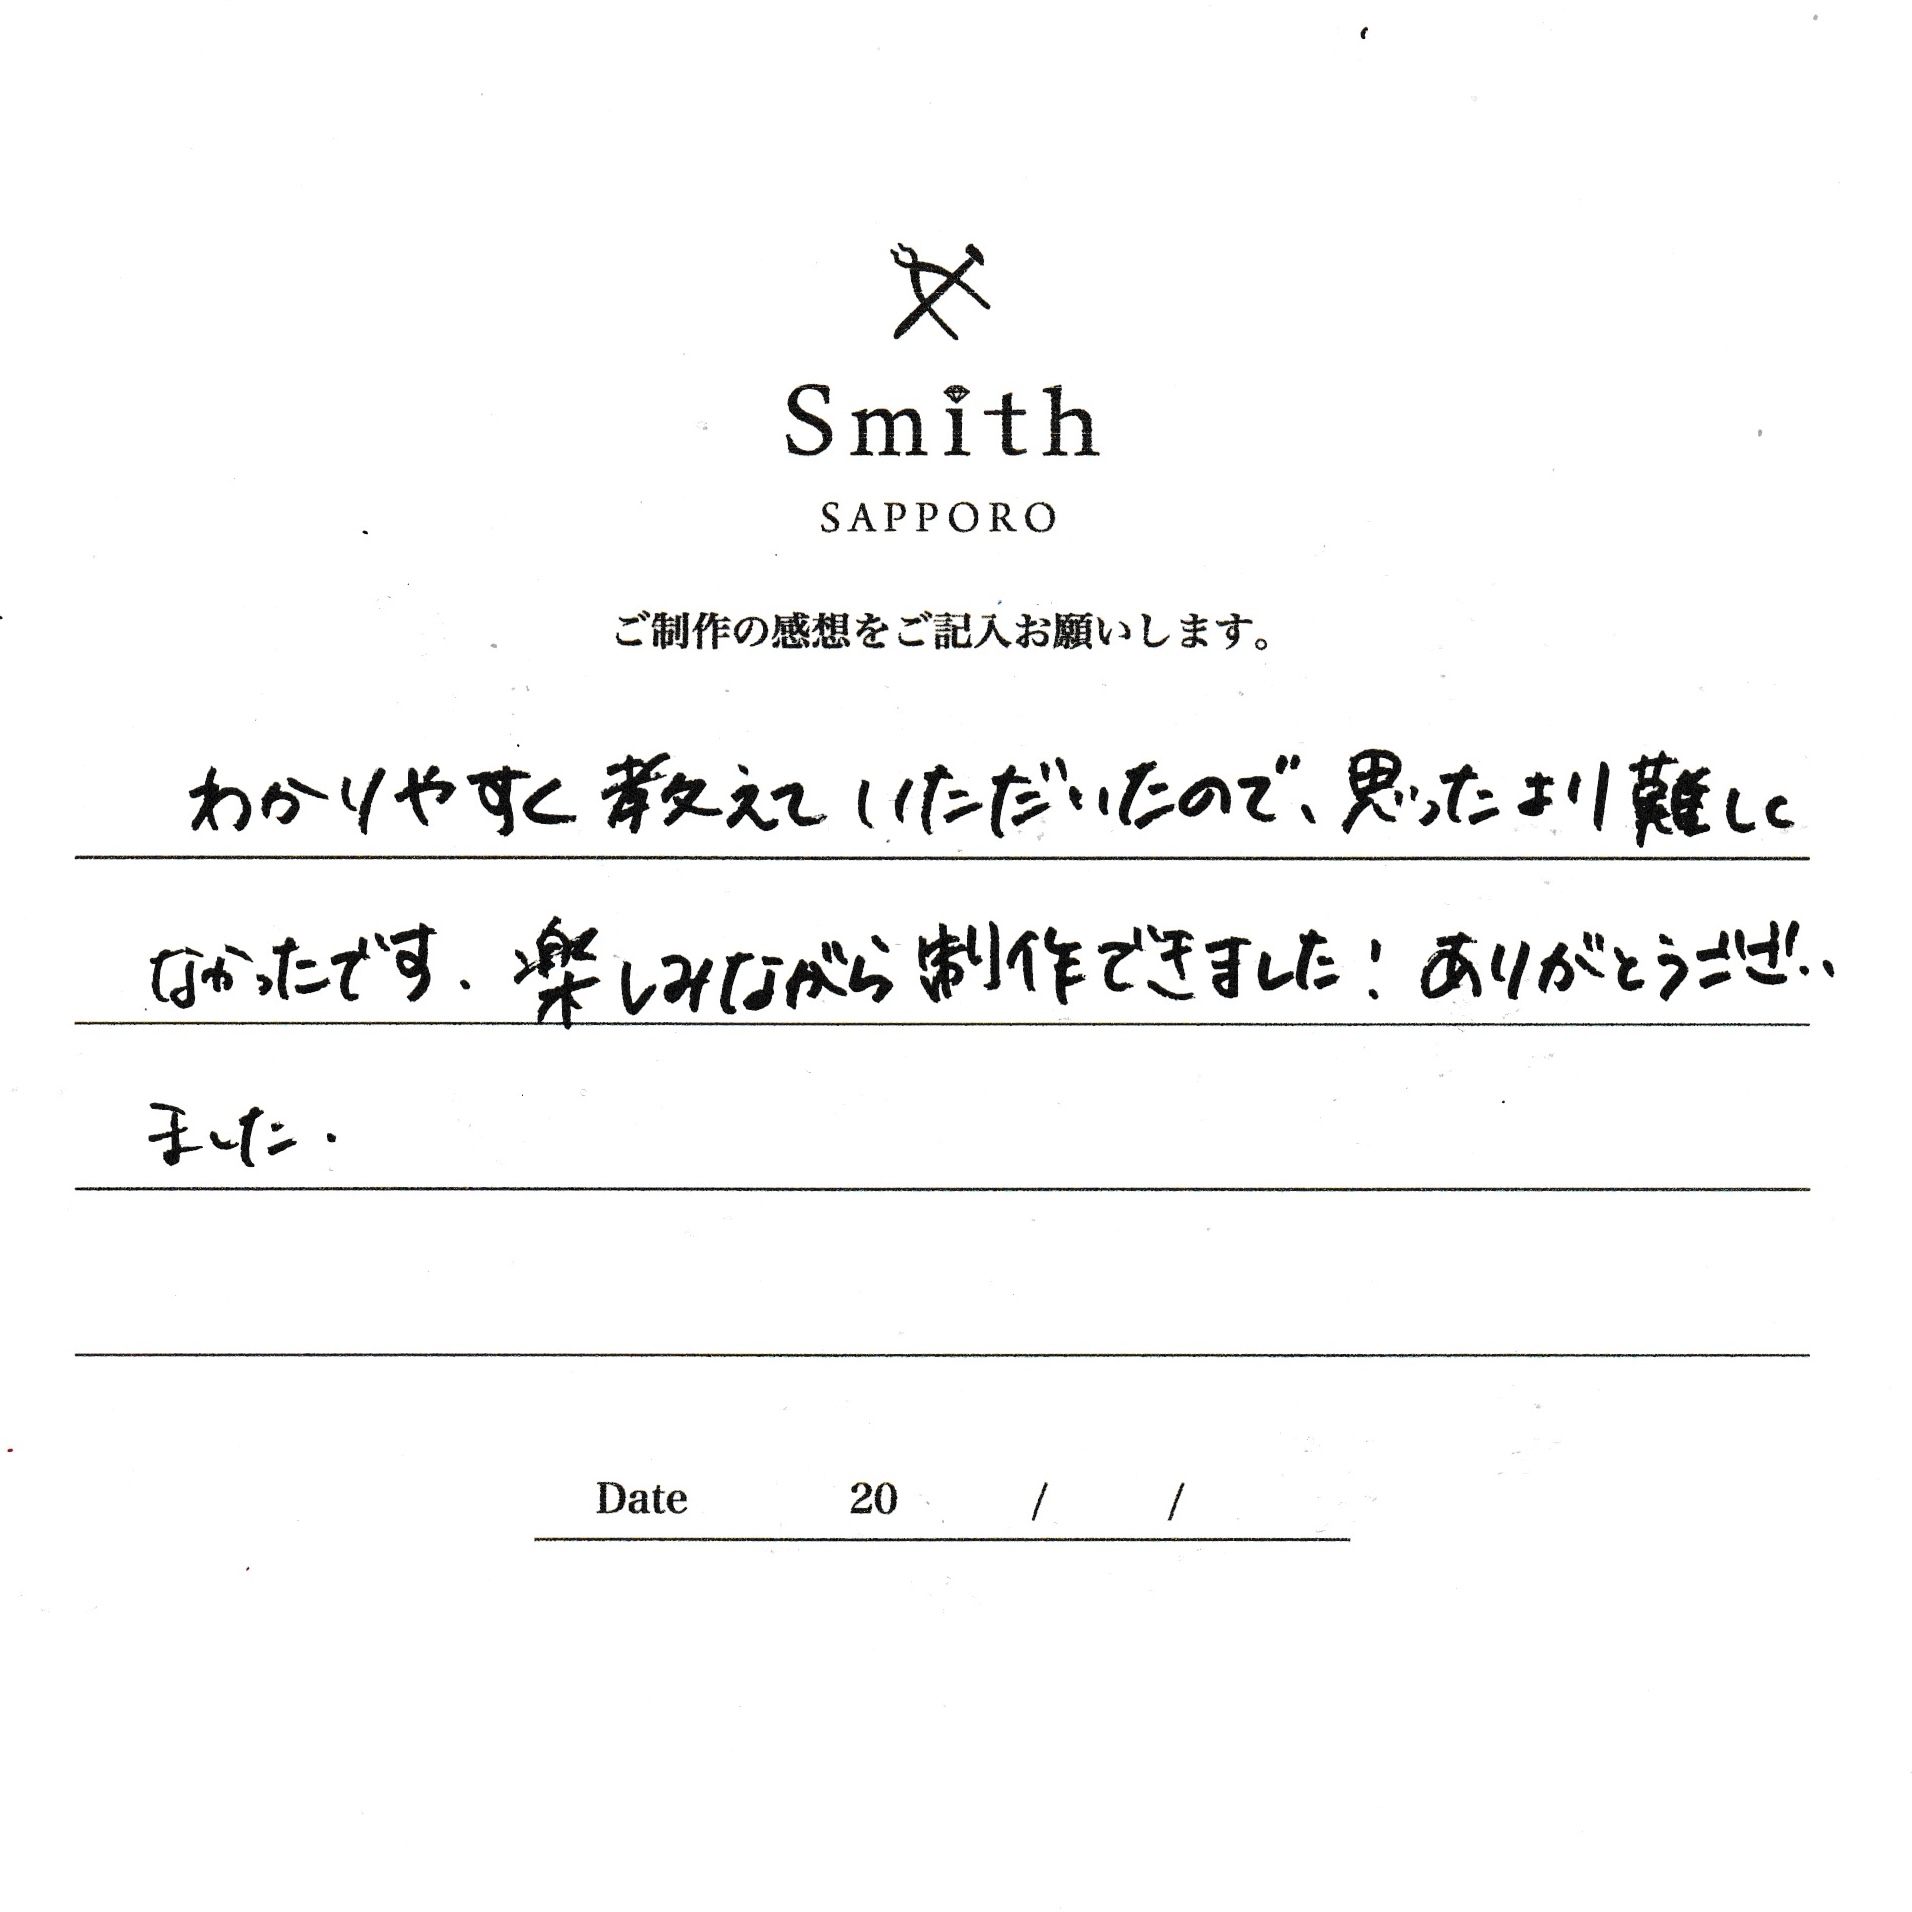 Smith
SAPPORO
ご制作の感想をご記入お願いします。
わかりやすく教えていただいたので、思ったより難しく
なかったです。楽しみながら制作できました！ありがとうござい
ました。
Date 20 / /